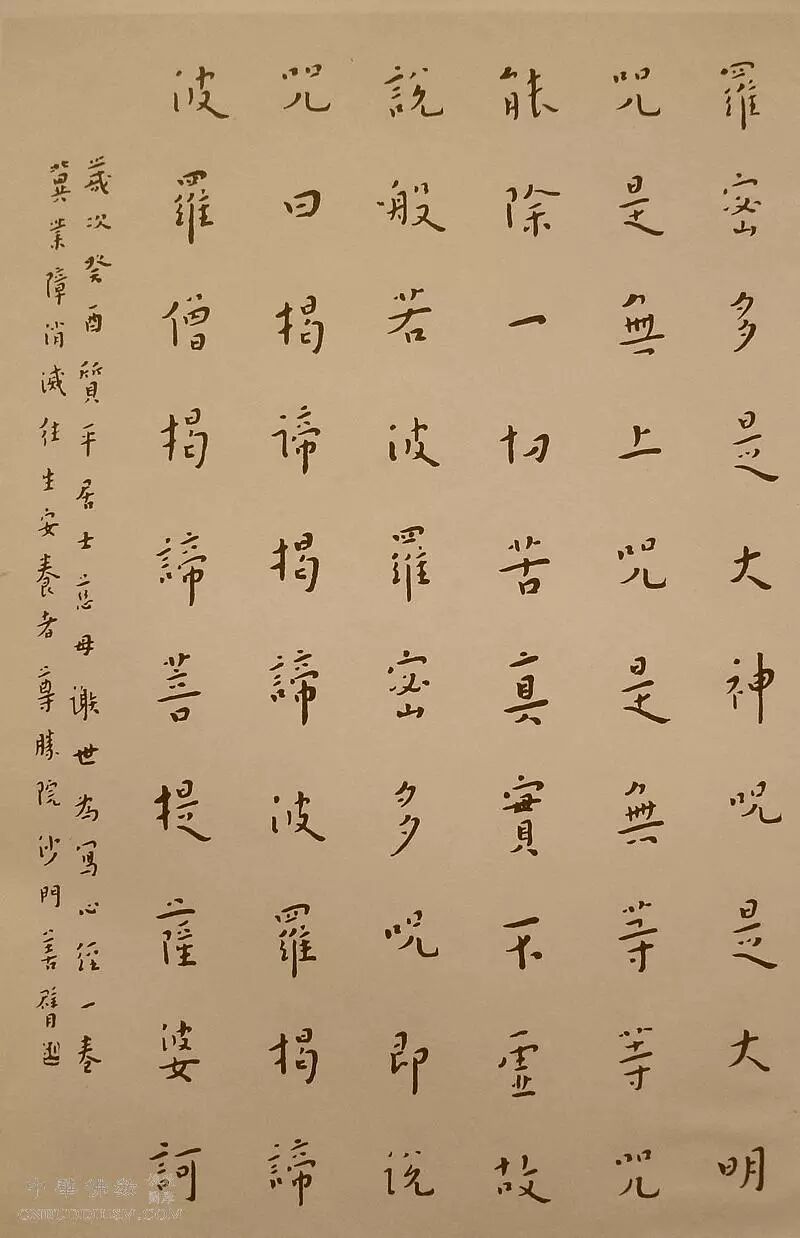 羅密多是大神呪是大明
呪是無上呪是無等等呪
能除一切苦真實不虛故
說般若波羅密多呪即說
呪曰揭諦揭諦波羅揭諦
波羅僧揭諦菩提薩婆訶
歲次癸酉質平居士慈母謝世為寫心經一卷
冀業障消滅往生安養者尊勝院沙門善臂
中華佛教
CNBUDDHISM.COM